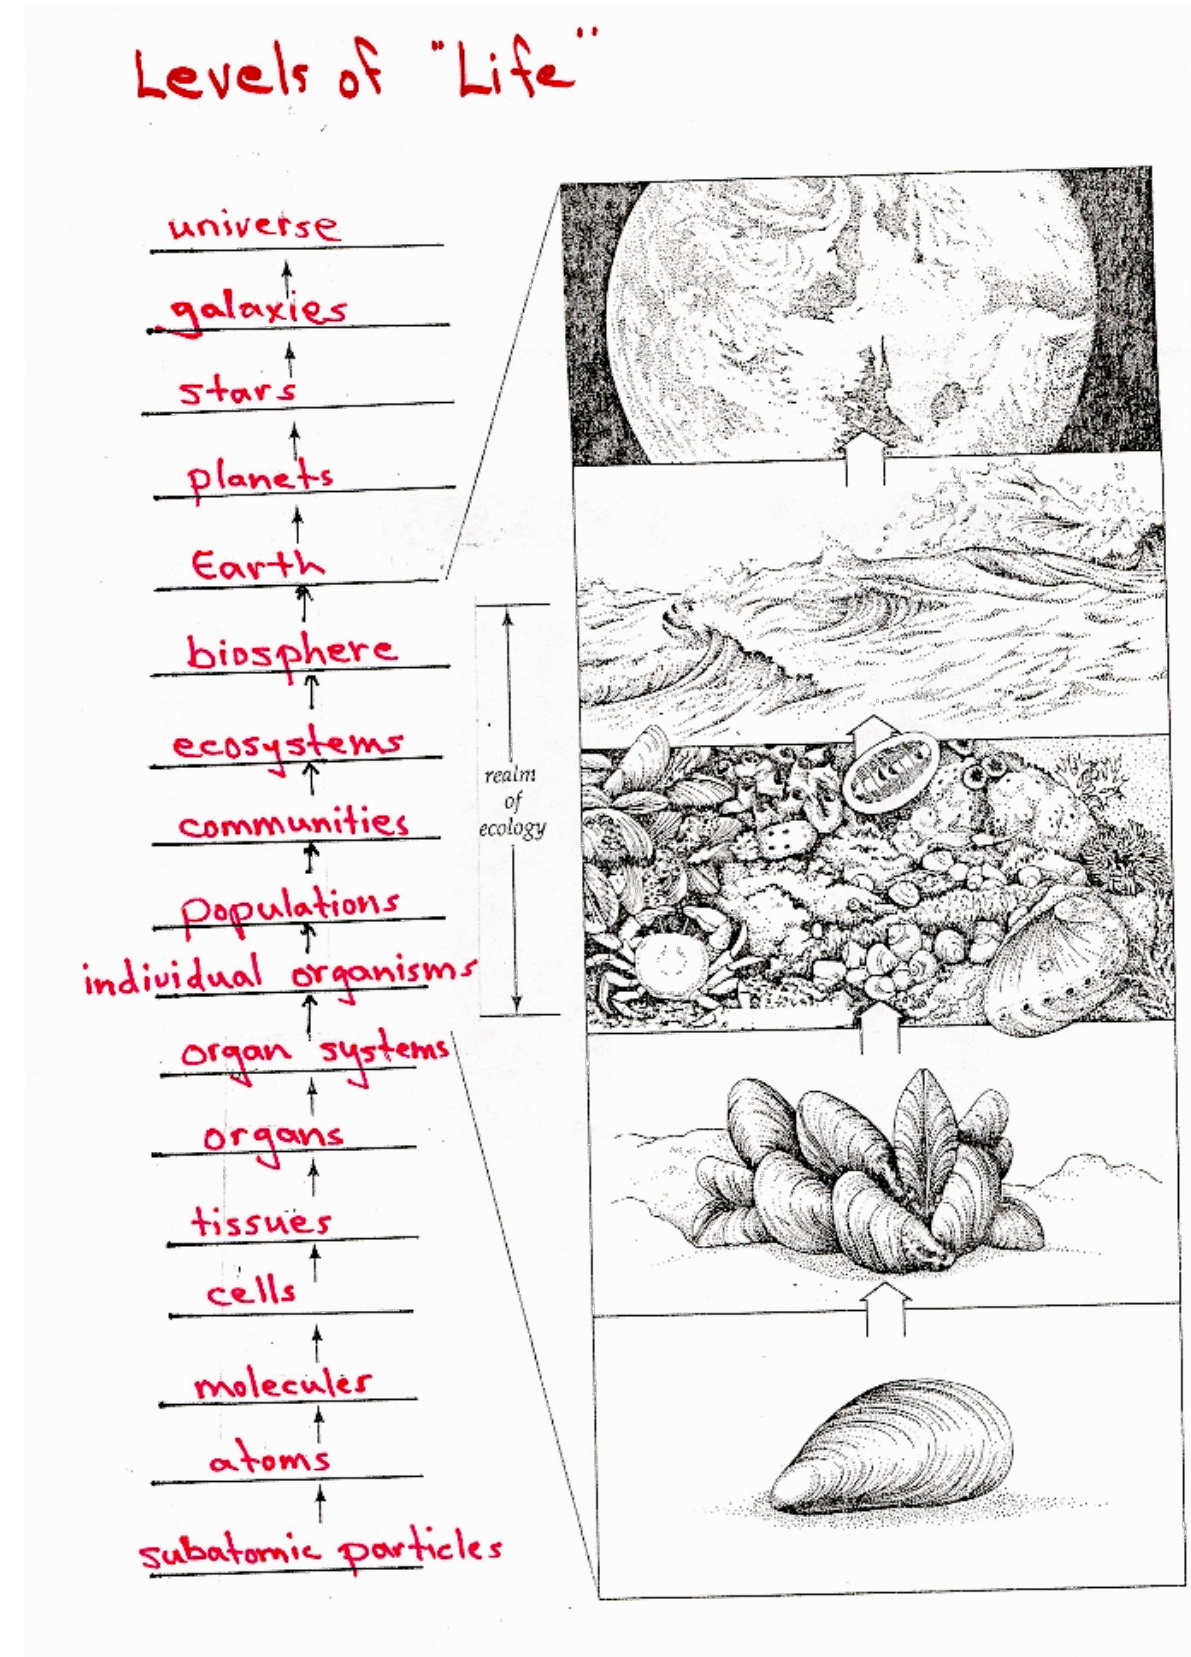 Levels of "Life"
universe
galaxies
stars
planets
Earth
biosphere
ecosystems
communities
populations
individual organisms
organ systems
organs
tissues
cells
molecules
atoms
subatomic particles
realm
of
ecology